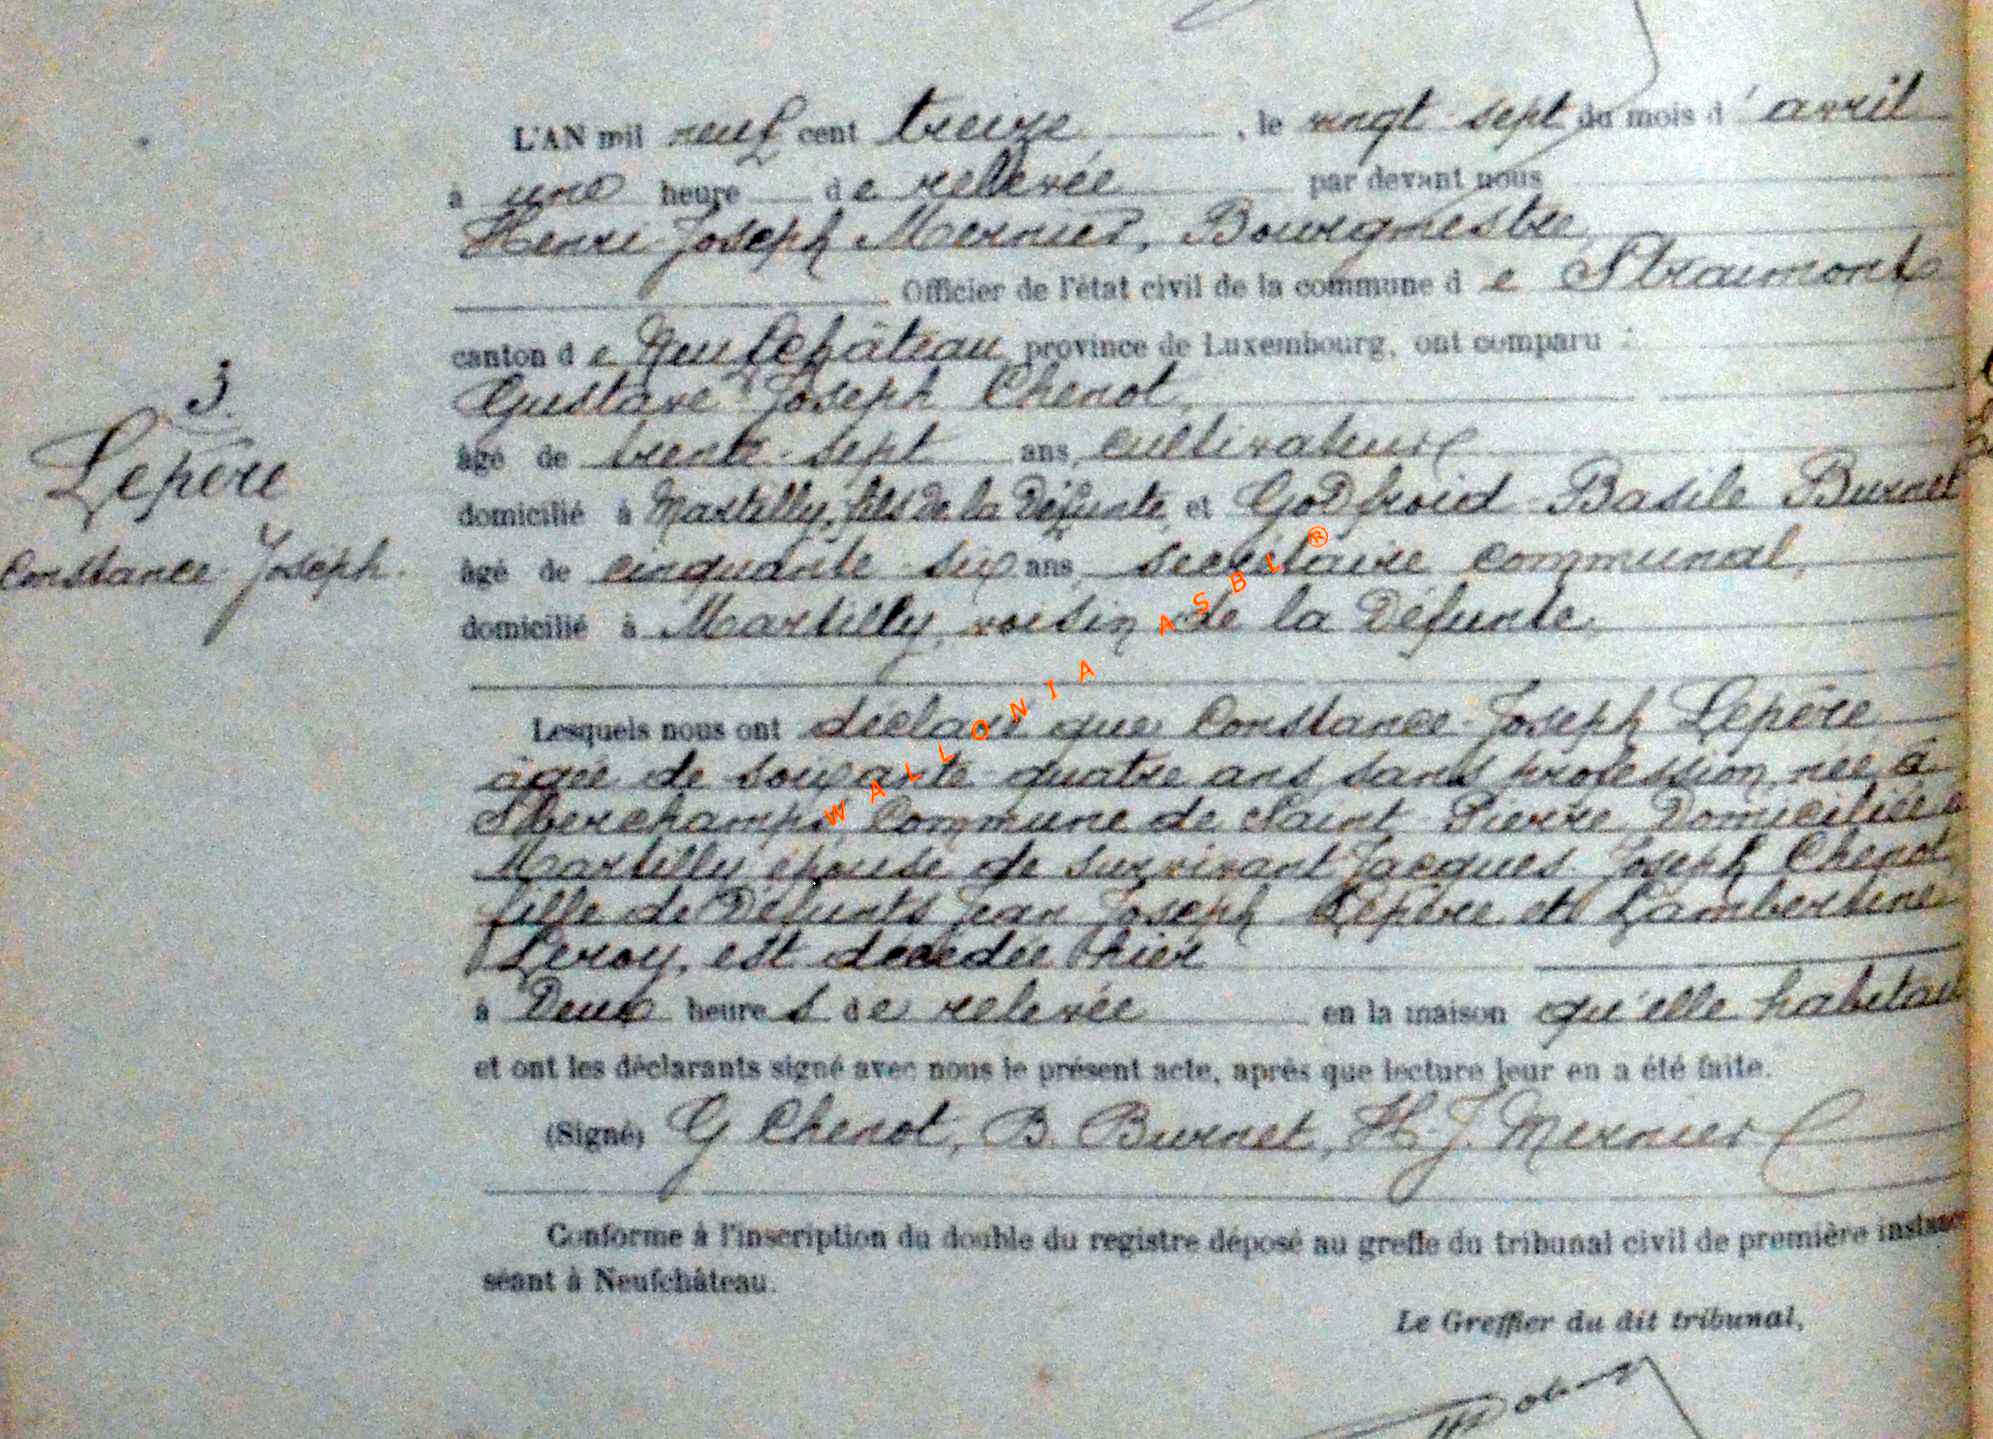 L'AN mil neuf cent treize, le vingt-sept du mois d'avril
à une heure de relevée par devant nous
Henri-Joseph Mernier, Bourgmestre,
Officier de l'état civil de la commune de Straimont
canton de Neufchâteau province de Luxembourg, ont comparu :
Gustave-Joseph Chenot,
3.
âgé de trente-sept ans, cultivateur
Lepère
domicilié à Martilly, fils de la Défunte, et Godfroid-Basile Burnet
Constance-Joseph.
âgé de cinquante-six ans, secrétaire communal,
domicilié à Martilly, voisin de la Défunte,
Lesquels nous ont déclaré que Constance-Joseph Lepère
âgée de soixante-quatre ans, sans profession, née à
Sberchamps, Commune de Saint-Pierre, Domiciliée à
Martilly épouse de survivant Jacques-Joseph Chenot,
fille de Défunts Jean-Joseph Lepère et Lambertine
Leroy, est décédée hier
à Deux heures de relevée en la maison qu'elle habitait
et ont les déclarants signé avec nous le présent acte, après que lecture leur en a été faite.
(Signé) G Chenot, B. Burnet, H. J. Mernier
Conforme à l'inscription du double du registre déposé au greffe du tribunal civil de première instance
séant à Neufchâteau.
Le Greffier du dit tribunal,
WALLONIA ASBL ®